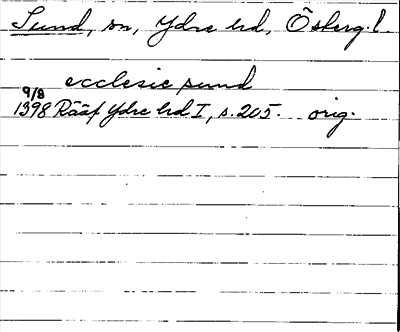 Sund, sn, Ydre hd, Österg. l.
ecclesie sund
9/8
1398 Rääf Ydre hd I, s. 205. orig.